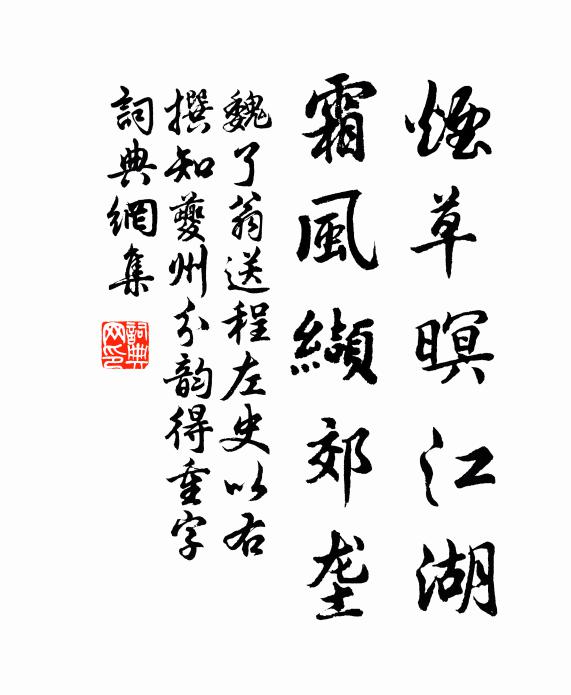 煙草暝江湖
霜風纈郊垄
魏了翁送程左史以右
撰知夔州分韵得重字
詞典網集
詞典网印